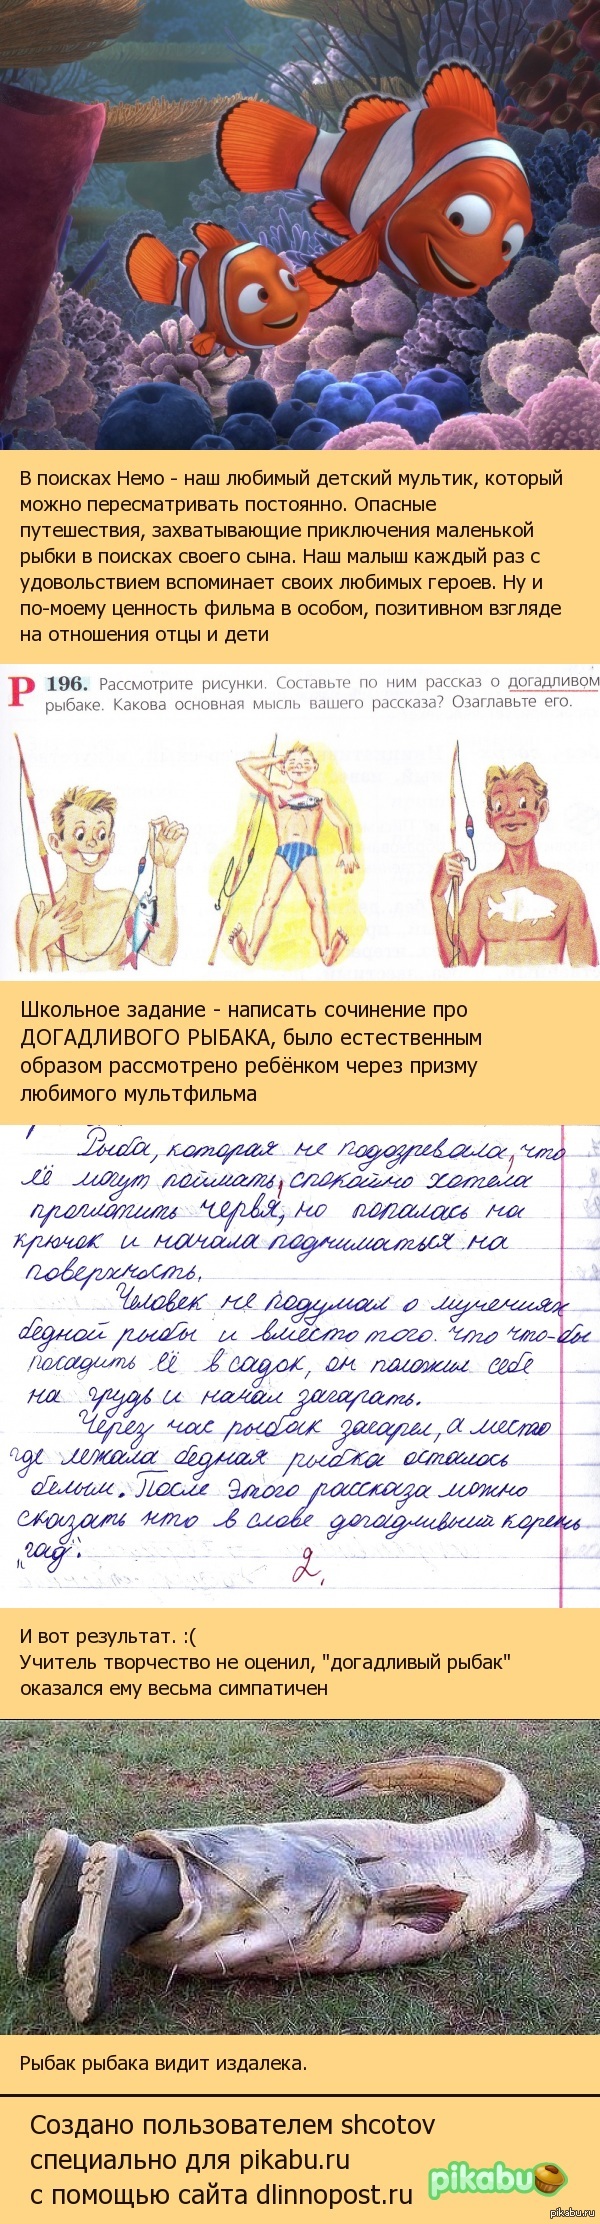 В поисках Немо - наш любимый детский мультик, который
можно пересматривать постоянно. Опасные
путешествия, захватывающие приключения маленькой
рыбки в поисках своего сына. Наш малыш каждый раз с
удовольствием вспоминает своих любимых героев. Ну и
по-моему ценность фильма в особом, позитивном взгляде
на отношения отцы и дети
Р 196. Рассмотрите рисунки. Составьте по ним рассказ о догадливом
рыбаке. Какова основная мысль вашего рассказа? Озаглавьте его.
Школьное задание - написать сочинение про
ДОГАДЛИВОГО РЫБАКА, было естественным
образом рассмотрено ребёнком через призму
любимого мультфильма
Рыба, которая не подозревала, что
её могут поймать, спокойно хотела
проглотить червя, но попалась на
крючок и начала подниматься на
поверхность.
Человек не подумал о мучениях
бедной рыбы и вместо того что что-бы
посадить её в садок, он положил себе
на грудь и начал загарать.
Через час рыбак загарел, а место
где лежала бедная рыбка осталось
белым. После этого рассказа можно
сказать что в слове догадливый корень
"гад".
2.
И вот результат. :(
Учитель творчество не оценил, "догадливый рыбак"
оказался ему весьма симпатичен
Рыбак рыбака видит издалека.
Создано пользователем shcotov
специально для pikabu.ru
с помощью сайта dlinnopost.ru
pikabu
pikabu.ru